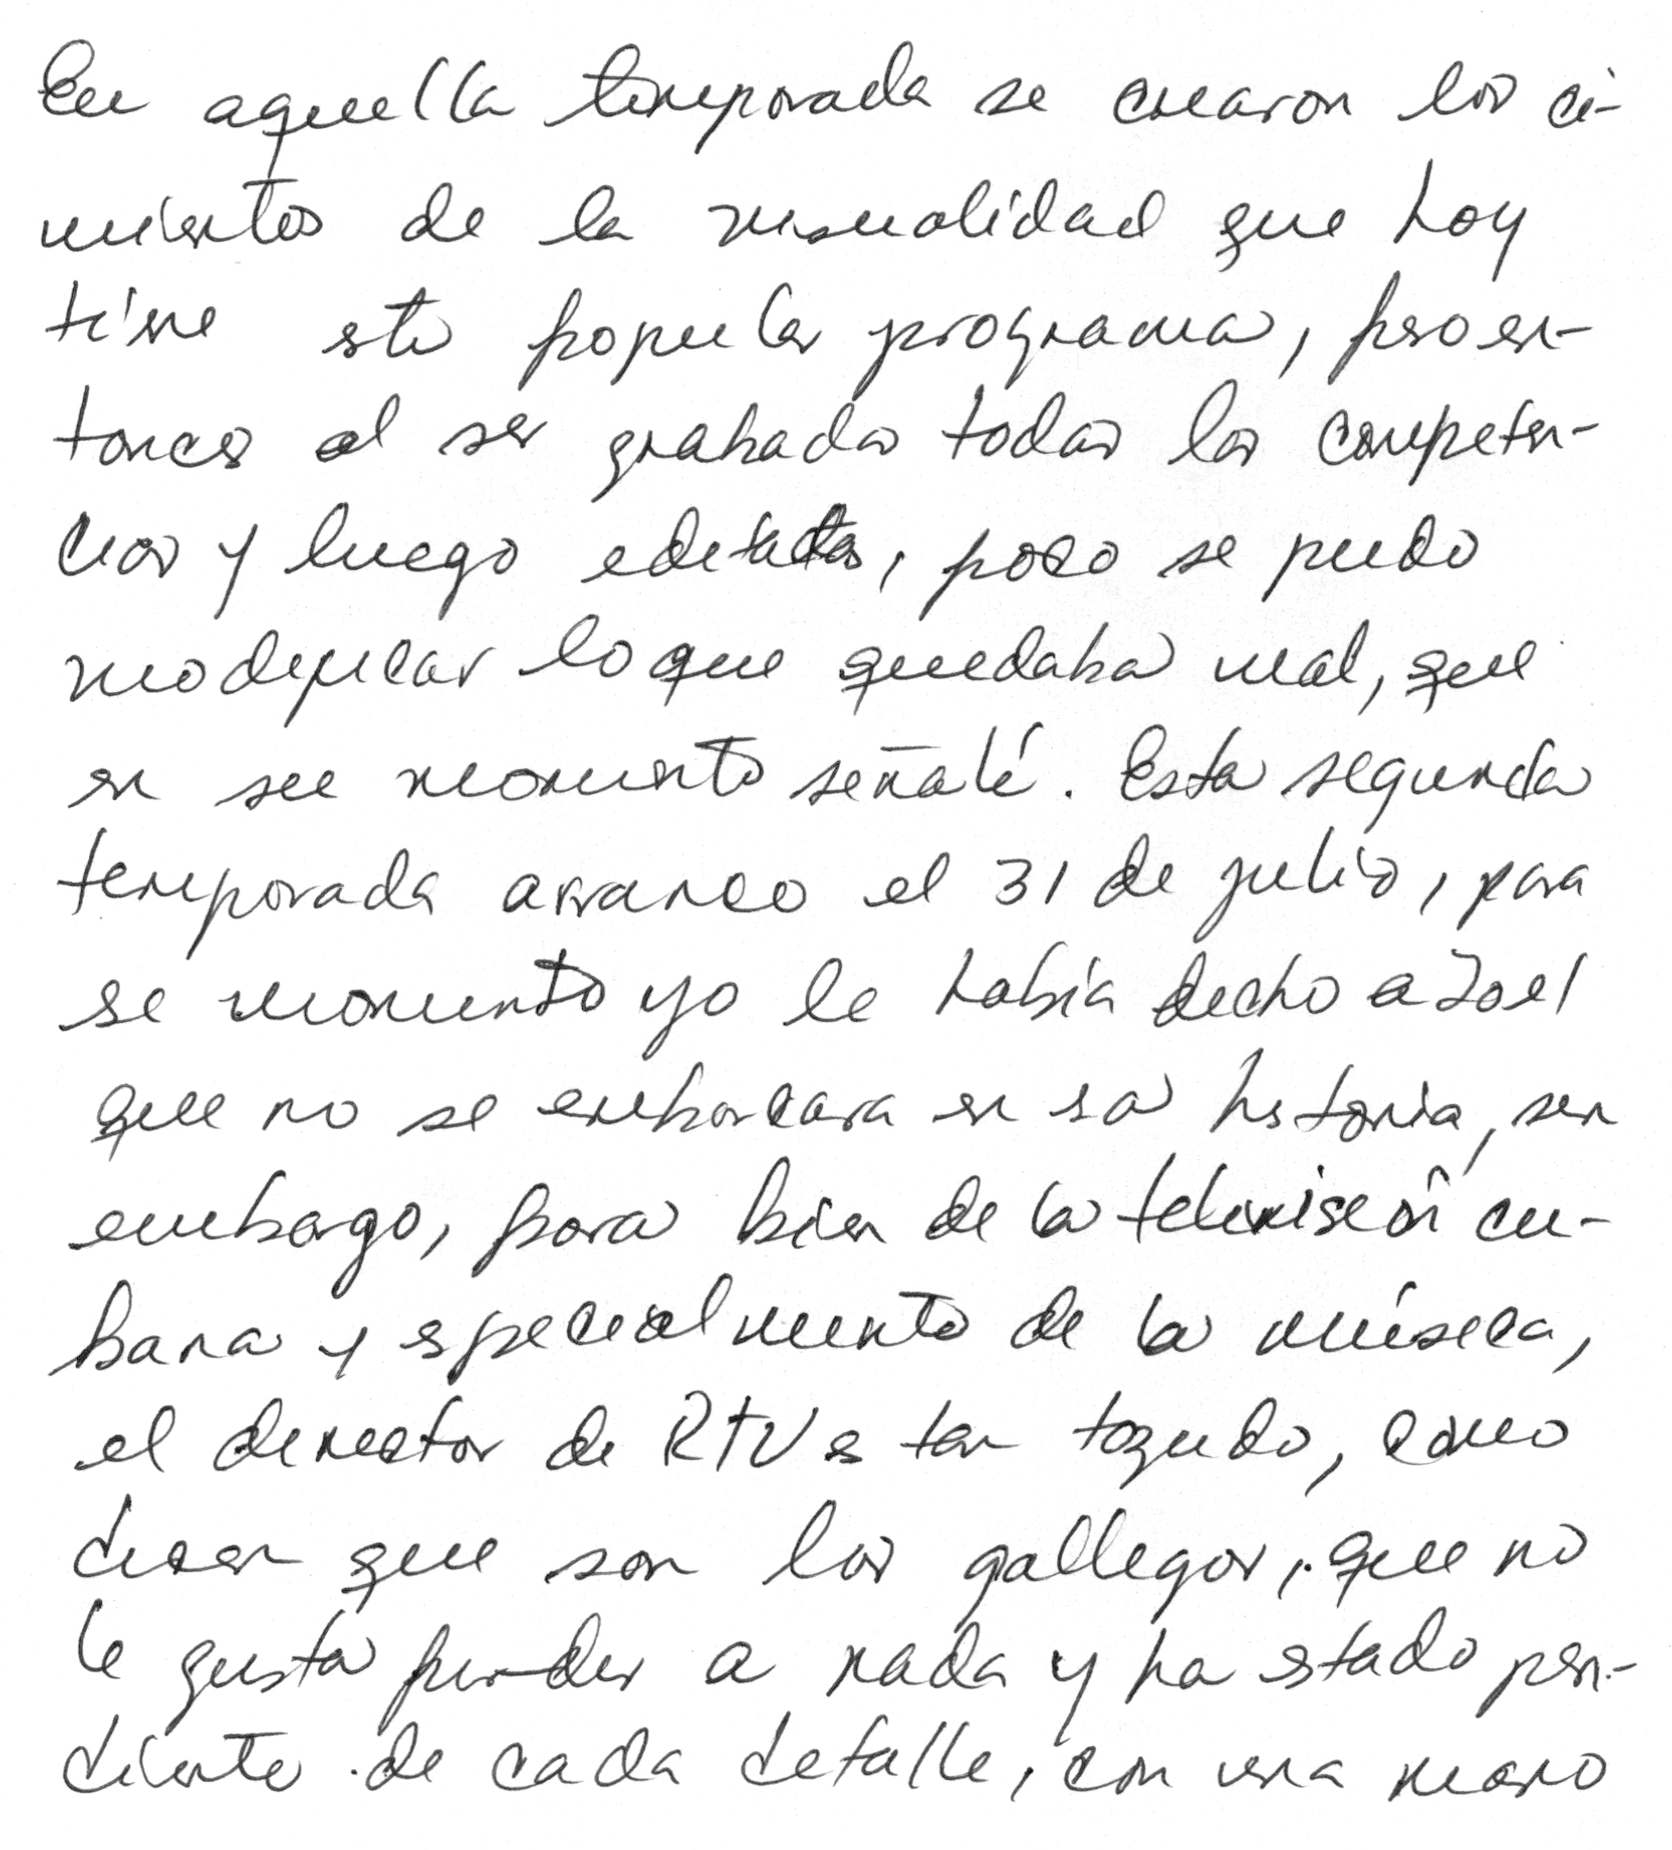 En aquella temporada se crearon los ci-
mientos de la visualidad que hoy
tiene este popular programa, pero en-
tonces al ser grabadas todas las competen-
cias y luego editadas, poco se pudo
modificar lo que quedaba mal, que
en su momento señalé. Esta segunda
temporada arrancó el 31 de julio, para
ese momento yo le había dicho a Joel
que no se embarcara en esa historia, sin
embargo, para bien de la televisión cu-
bana y especialmente de la música,
el director de RTV es tan tozudo, como
dicen que son los gallegos, que no
le gusta perder a nada y ha estado pen-
diente de cada detalle, con una mano